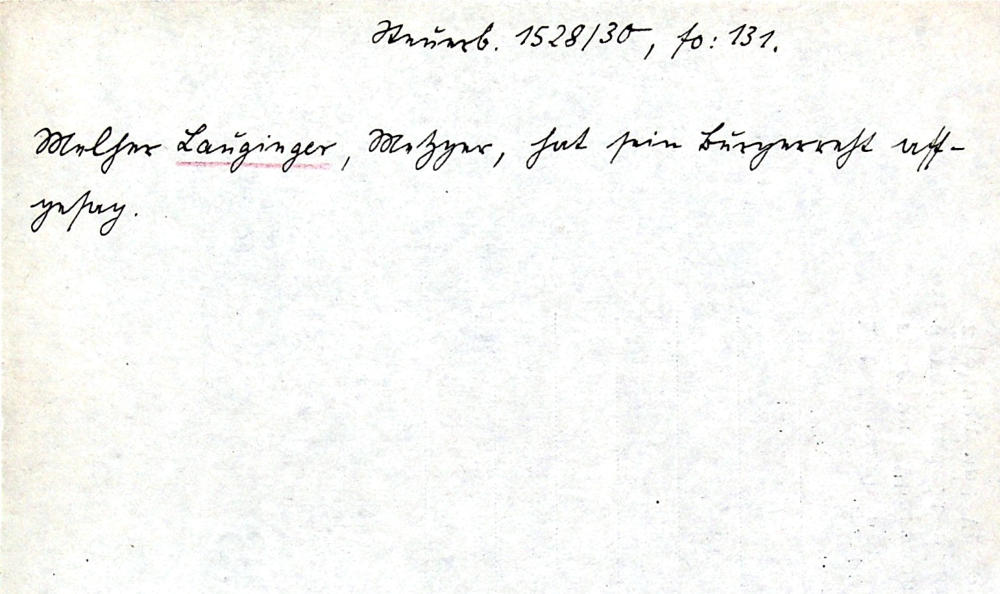 Steuerb. 1528/30, fo: 131.
Melher Lauginger, Metzger, hat sein Burgerreht uff-
gesag.